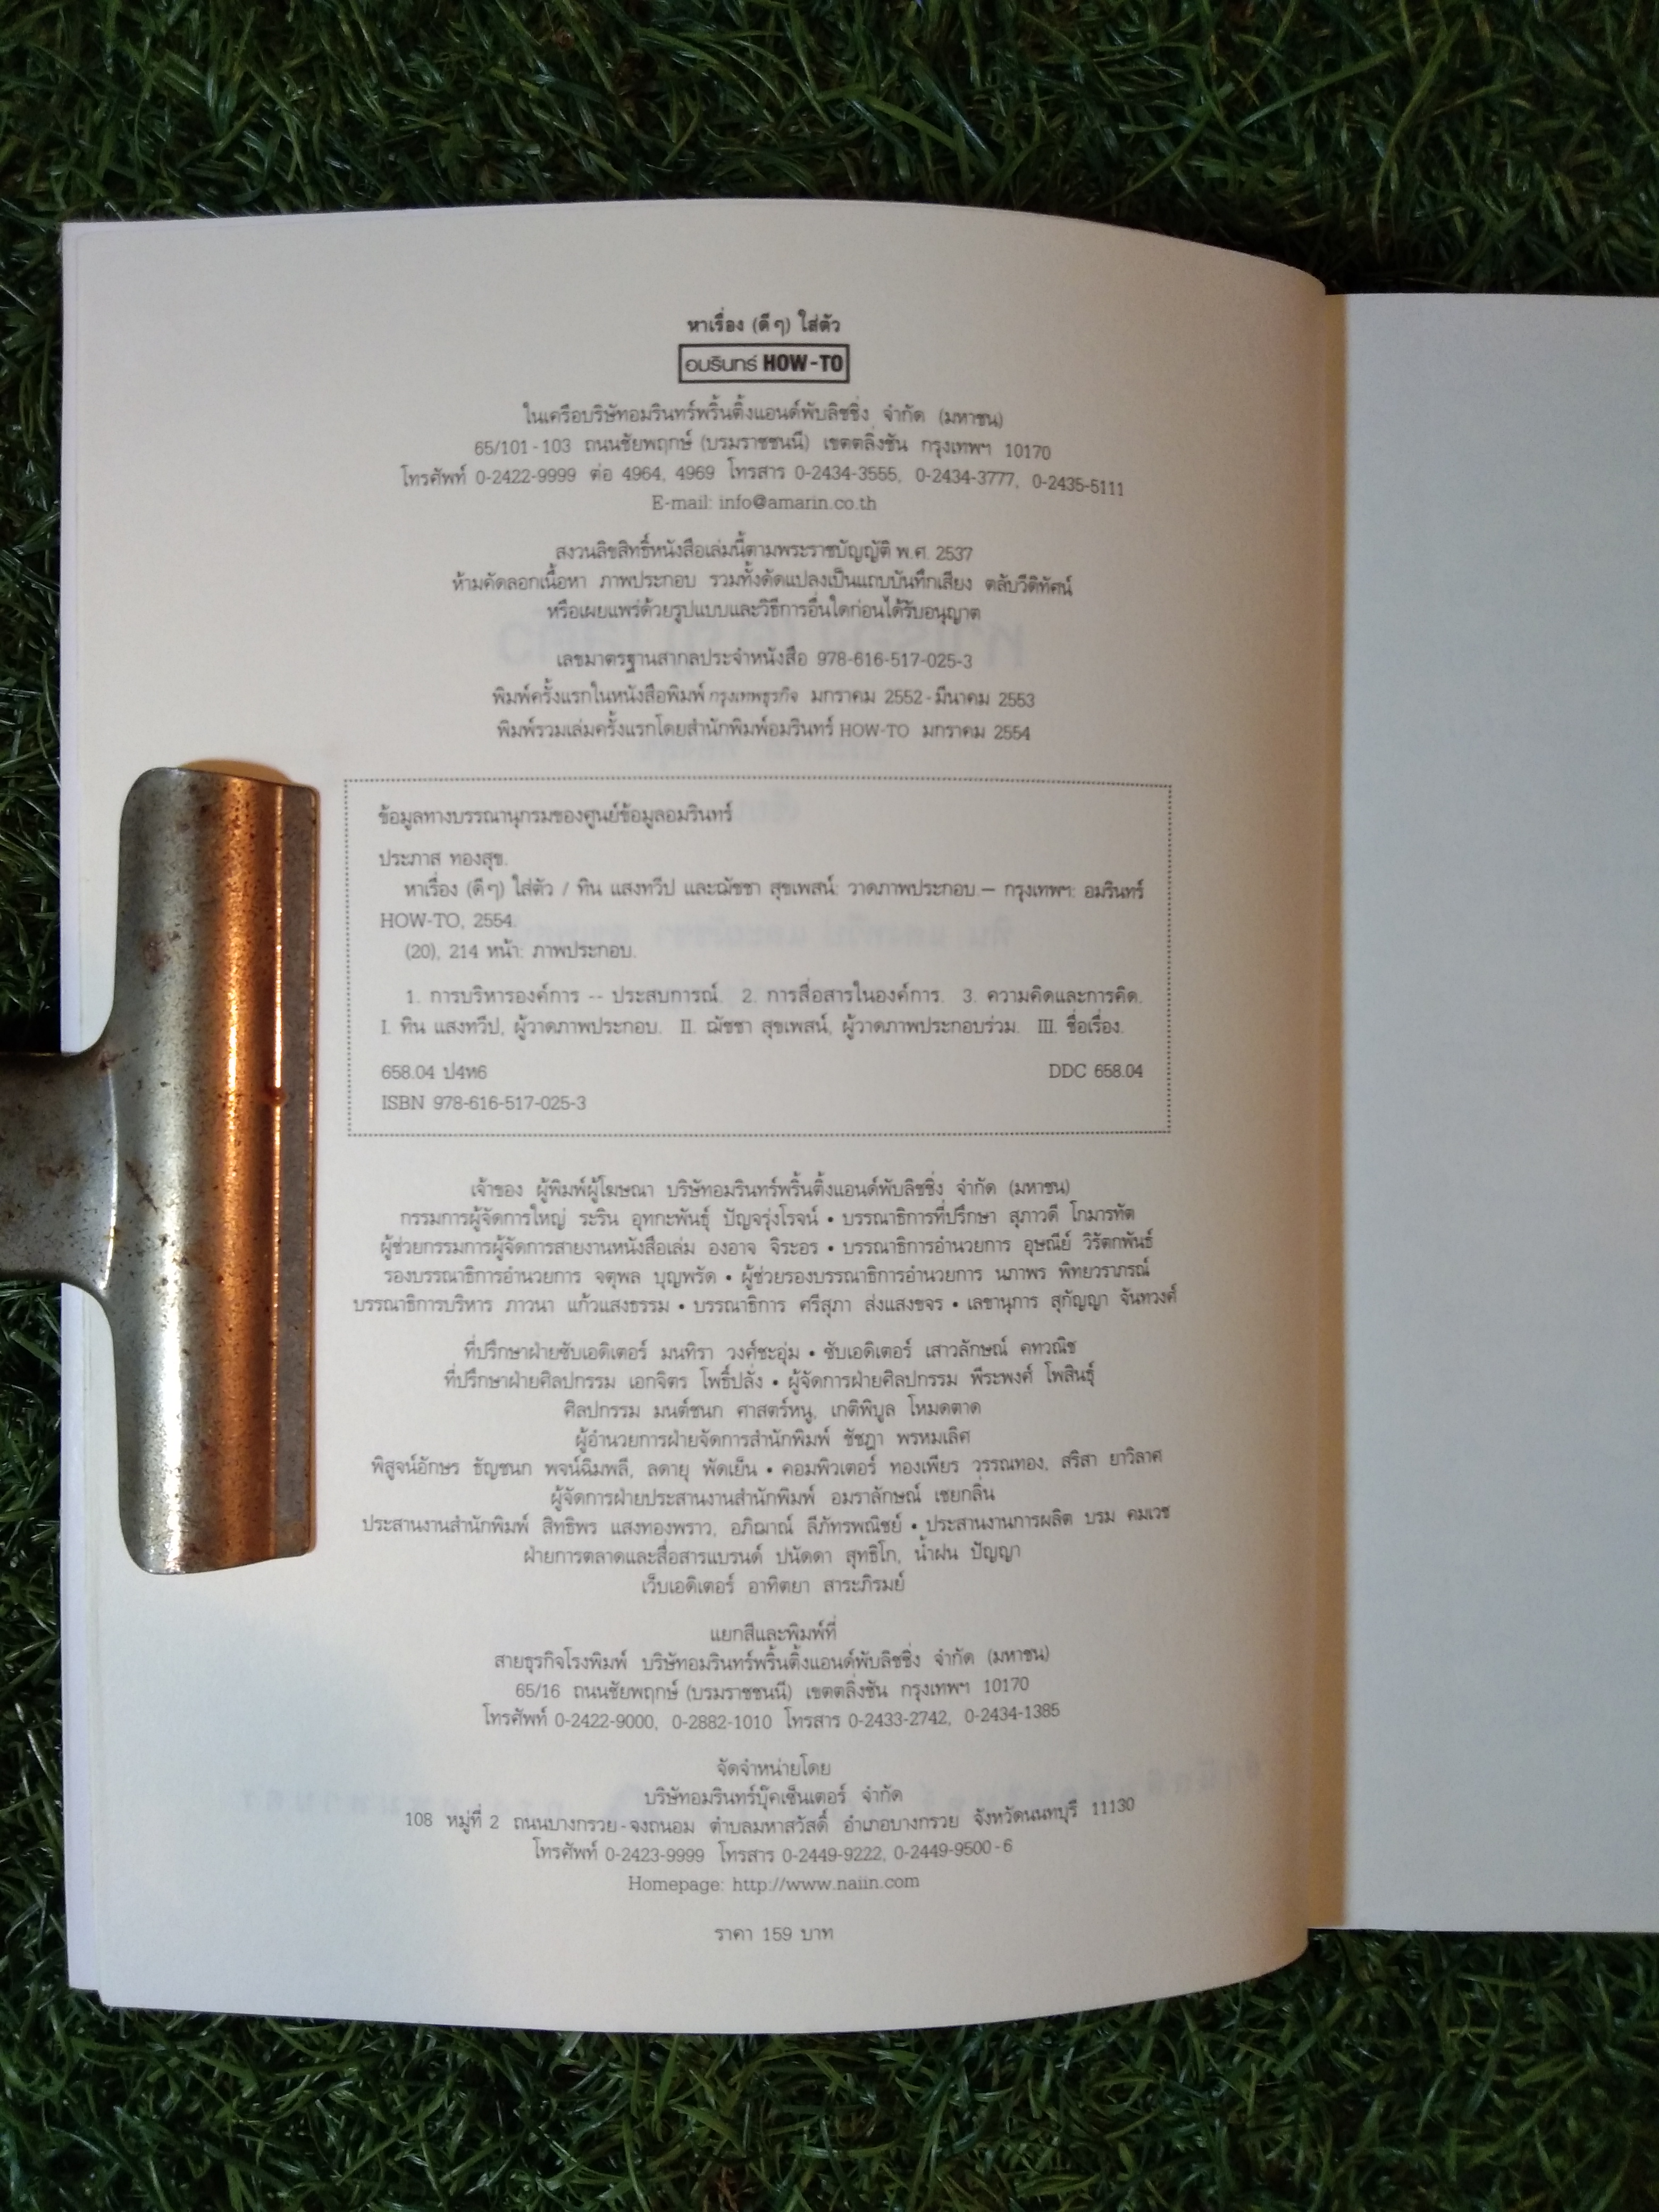 หาเรื่อง (ดีๆ) ใส่ตัว
อมรินทร์ HOW-TO
ในเครือบริษัทอมรินทร์พริ้นติ้งแอนด์พับลิชชิ่ง จำกัด (มหาชน)
65/101-103 ถนนชัยพฤกษ์ (บรมราชชนนี) เขตตลิ่งชัน กรุงเทพฯ 10170
โทรศัพท์ 0-2422-9999 ต่อ 4964, 4969 โทรสาร 0-2434-3555, 0-2434-3777, 0-2435-5111
E-mail: info@amarin.co.th
สงวนลิขสิทธิ์หนังสือเล่มนี้ตามพระราชบัญญัติ พ.ศ. 2537
ห้ามคัดลอกเนื้อหา ภาพประกอบ รวมทั้งดัดแปลงเป็นแถบบันทึกเสียง ตลับวีดิทัศน์
หรือเผยแพร่ด้วยรูปแบบและวิธีการอื่นใดก่อนได้รับอนุญาต
เลขมาตรฐานสากลประจำหนังสือ 978-616-517-025-3
พิมพ์ครั้งแรกในหนังสือพิมพ์ กรุงเทพธุรกิจ มกราคม 2552-มีนาคม 2553
พิมพ์รวมเล่มครั้งแรกโดยสำนักพิมพ์อมรินทร์ HOW-TO มกราคม 2554
ข้อมูลทางบรรณานุกรมของศูนย์ข้อมูลอมรินทร์
ประภาส ทองสุข.
หาเรื่อง (ดีๆ) ใส่ตัว / ทิน แสงทวีป และณัชชา สุขเพสน์: วาดภาพประกอบ.— กรุงเทพฯ: อมรินทร์
HOW-TO, 2554.
(20), 214 หน้า: ภาพประกอบ.
1. การบริหารองค์การ -- ประสบการณ์. 2. การสื่อสารในองค์การ. 3. ความคิดและการคิด.
I. ทิน แสงทวีป, ผู้วาดภาพประกอบ. II. ณัชชา สุขเพสน์, ผู้วาดภาพประกอบร่วม. III. ชื่อเรื่อง.
658.04 ป4ห6 DDC 658.04
ISBN 978-616-517-025-3
เจ้าของ ผู้พิมพ์ผู้โฆษณา บริษัทอมรินทร์พริ้นติ้งแอนด์พับลิชชิ่ง จำกัด (มหาชน)
กรรมการผู้จัดการใหญ่ ระริน อุทกะพันธุ์ ปัญจรุ่งโรจน์ • บรรณาธิการที่ปรึกษา สุภาวดี โกมารทัต
ผู้ช่วยกรรมการผู้จัดการสายงานหนังสือเล่ม องอาจ จิระอร • บรรณาธิการอำนวยการ อุษณีย์ วิรัตกพันธ์
รองบรรณาธิการอำนวยการ จตุพล บุญพรัด • ผู้ช่วยรองบรรณาธิการอำนวยการ นภาพร พิทยวราภรณ์
บรรณาธิการบริหาร ภาวนา แก้วแสงธรรม • บรรณาธิการ ศรีสุภา ส่งแสงขจร • เลขานุการ สุกัญญา จันทวงศ์
ที่ปรึกษาฝ่ายซับเอดิเตอร์ มนทิรา วงศ์ชะอุ่ม • ซับเอดิเตอร์ เสาวลักษณ์ คทวณิช
ที่ปรึกษาฝ่ายศิลปกรรม เอกจิตร โพธิ์ปลั่ง • ผู้จัดการฝ่ายศิลปกรรม พีระพงศ์ โพสินธุ์
ศิลปกรรม มนต์ชนก ศาสตร์หนู, เกติพิบูล โหมดตาด
ผู้อำนวยการฝ่ายจัดการสำนักพิมพ์ ชัชฎา พรหมเลิศ
พิสูจน์อักษร ธัญชนก พจน์ฉิมพลี, ลดายุ พัดเย็น • คอมพิวเตอร์ ทองเพียร วรรณทอง, สริสา ยาวิลาศ
ผู้จัดการฝ่ายประสานงานสำนักพิมพ์ อมราลักษณ์ เชยกลิ่น
ประสานงานสำนักพิมพ์ สิทธิพร แสงทองพราว, อภิฌาณ์ ลีภัทรพณิชย์ • ประสานงานการผลิต บรม คมเวช
ฝ่ายการตลาดและสื่อสารแบรนด์ ปนัดดา สุทธิโก, น้ำฝน ปัญญา
เว็บเอดิเตอร์ อาทิตยา สาระภิรมย์
แยกสีและพิมพ์ที่
สายธุรกิจโรงพิมพ์ บริษัทอมรินทร์พริ้นติ้งแอนด์พับลิชชิ่ง จำกัด (มหาชน)
65/16 ถนนชัยพฤกษ์ (บรมราชชนนี) เขตตลิ่งชัน กรุงเทพฯ 10170
โทรศัพท์ 0-2422-9000, 0-2882-1010 โทรสาร 0-2433-2742, 0-2434-1385
จัดจำหน่ายโดย
บริษัทอมรินทร์บุ๊คเซ็นเตอร์ จำกัด
108 หมู่ที่ 2 ถนนบางกรวย-จงถนอม ตำบลมหาสวัสดิ์ อำเภอบางกรวย จังหวัดนนทบุรี 11130
โทรศัพท์ 0-2423-9999 โทรสาร 0-2449-9222, 0-2449-9500-6
Homepage: http://www.naiin.com
ราคา 159 บาท